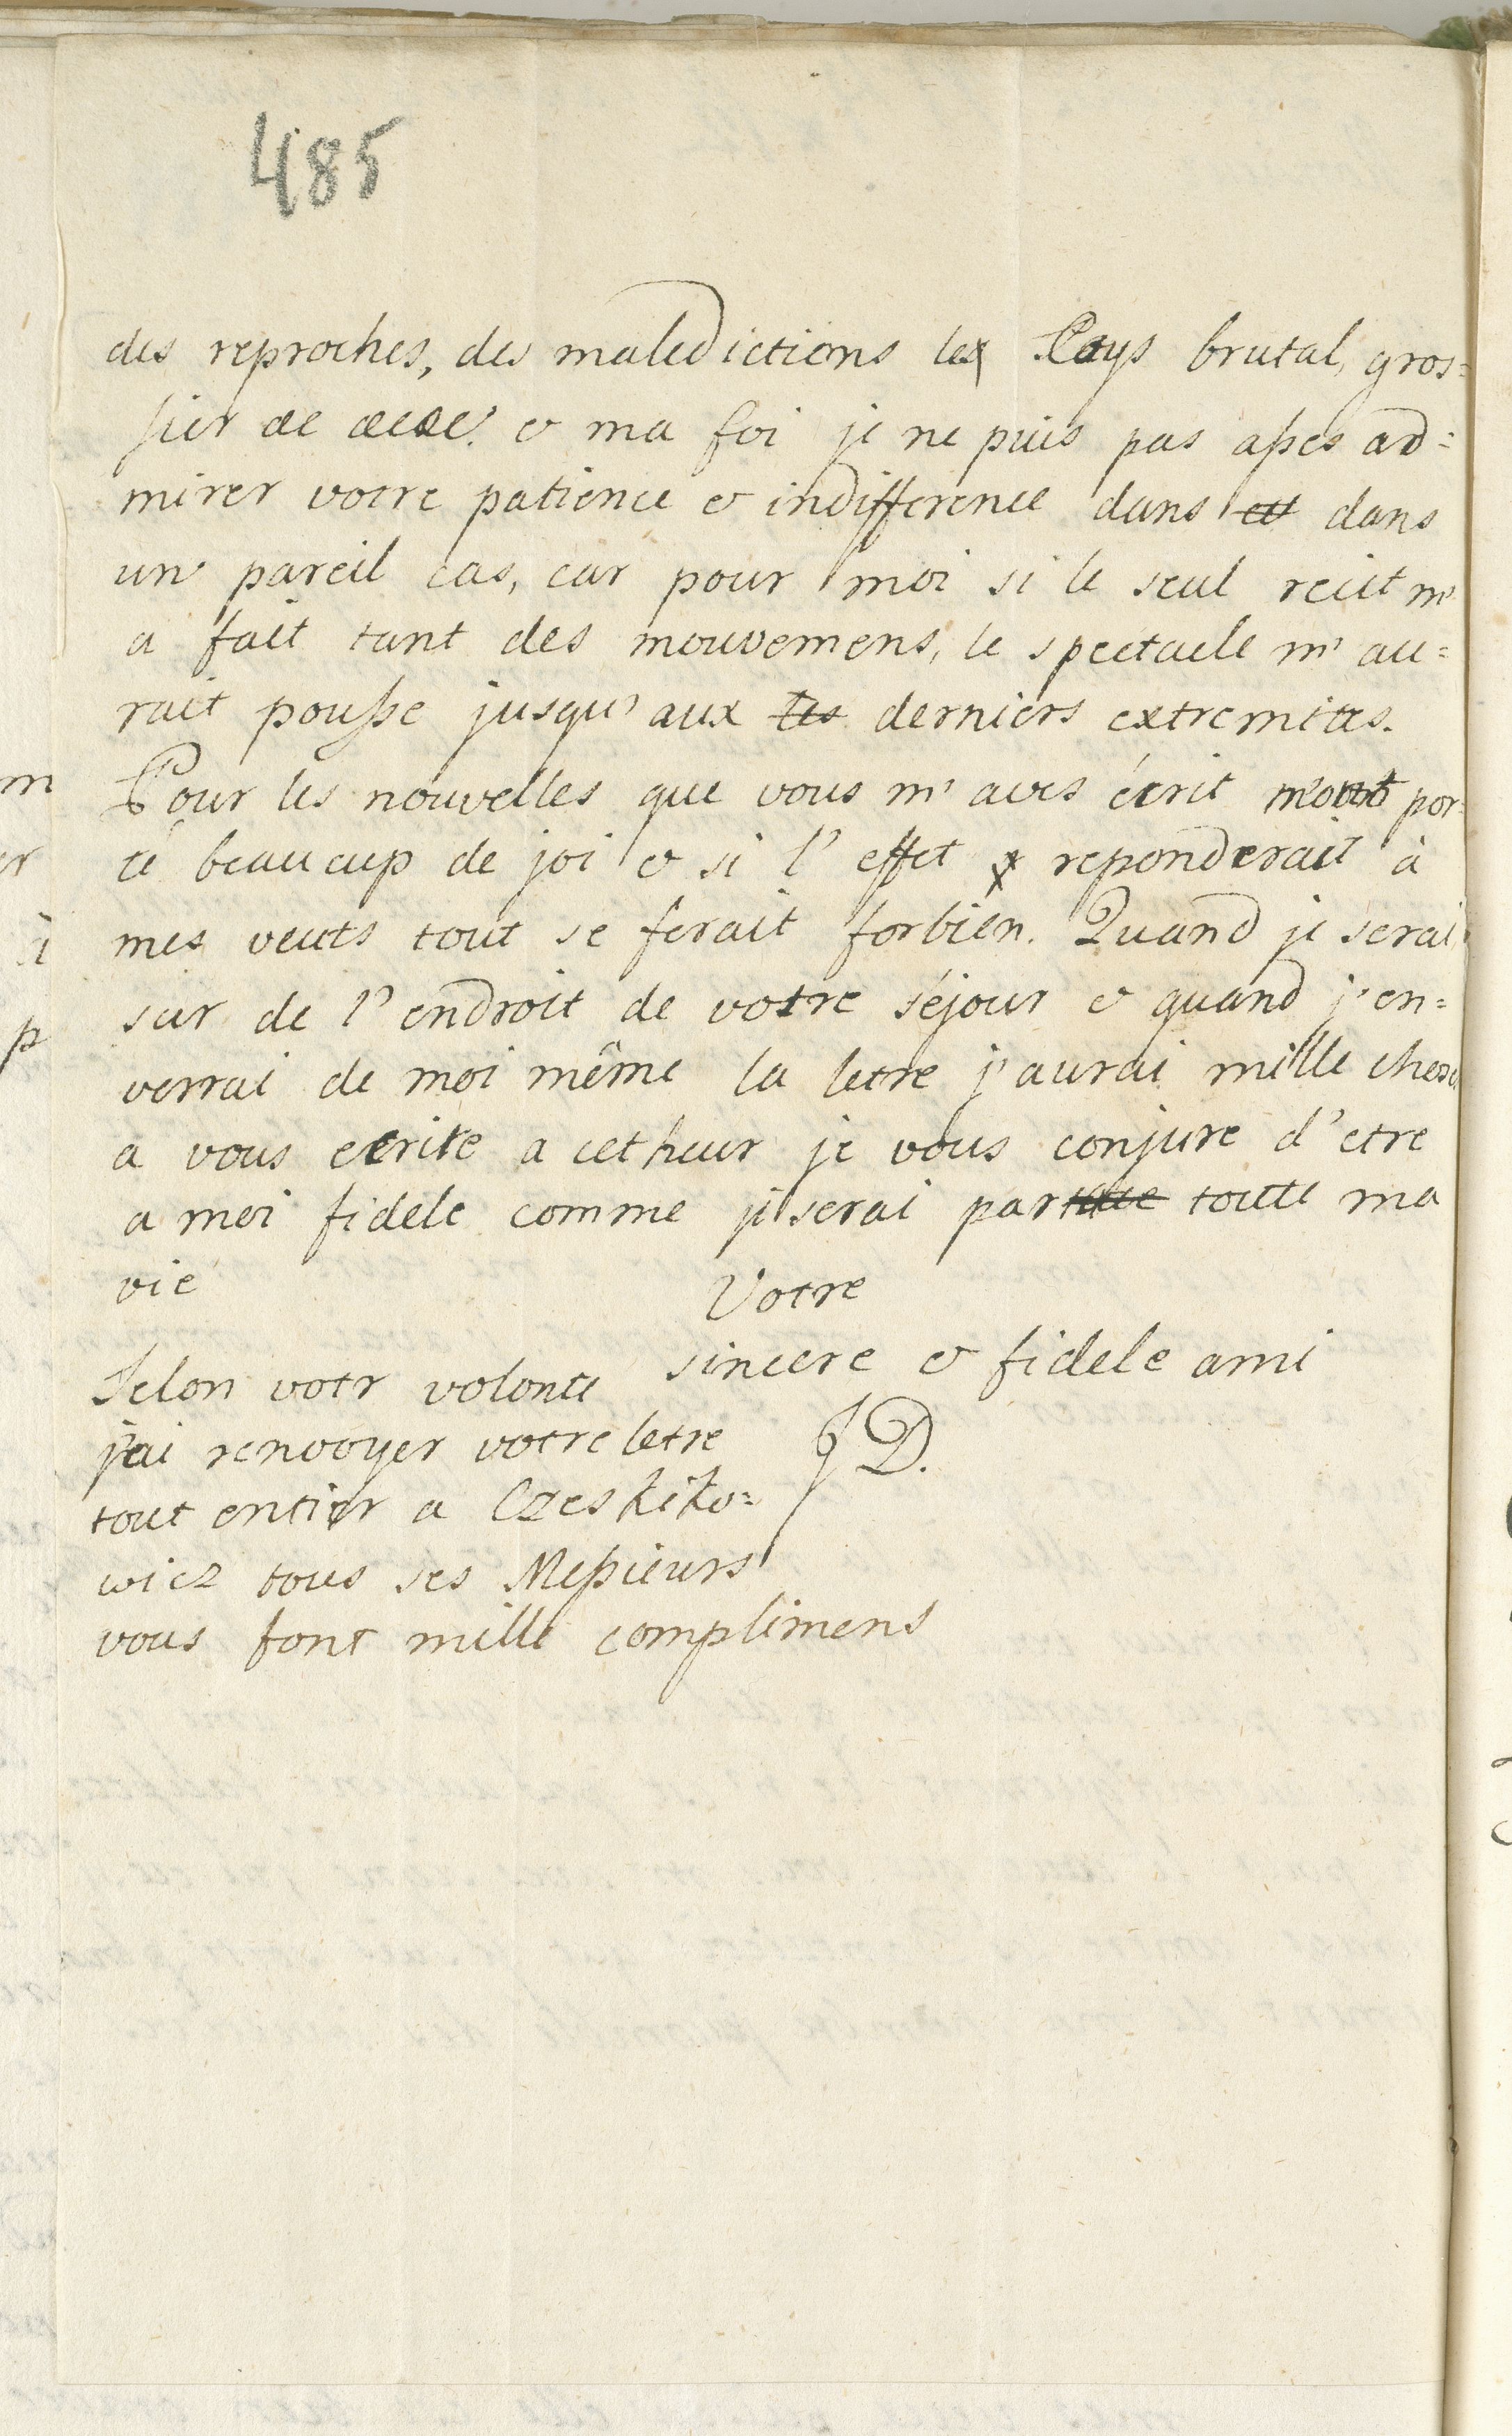 485
des reproches, des maledictions les Pays brutal, gros=
sier & ma foi je ne puis pas asses ad=
mirer votre patience & indifference dans et dans
un pareil cas, car pour moi si le seul recit m'
a fait tant des mouvemens, le spectacle m' au=
rait pousse jusqu' aux les derniers extremites.
Pour les nouvelles que vous m' aves écrit m'ont por=
té beaucup de joi & si l' effet reponderait à
mes veuts tout se ferait forbien. Quand je serai
sur de l' endroit de votre séjour & quand j' en=
verrai de moi même la letre j' aurai mille chose
a vous ecrire a cetheur je vous conjure d' etre
a moi fidele comme je serai par toute ma
vie
Votre
sincere & fidele ami
J D.
Selon votr volonte
j'ai renvoyer votre letre
tout entier a Czeskiko=
wicz tous ses Messieurs
vous font mille complimens